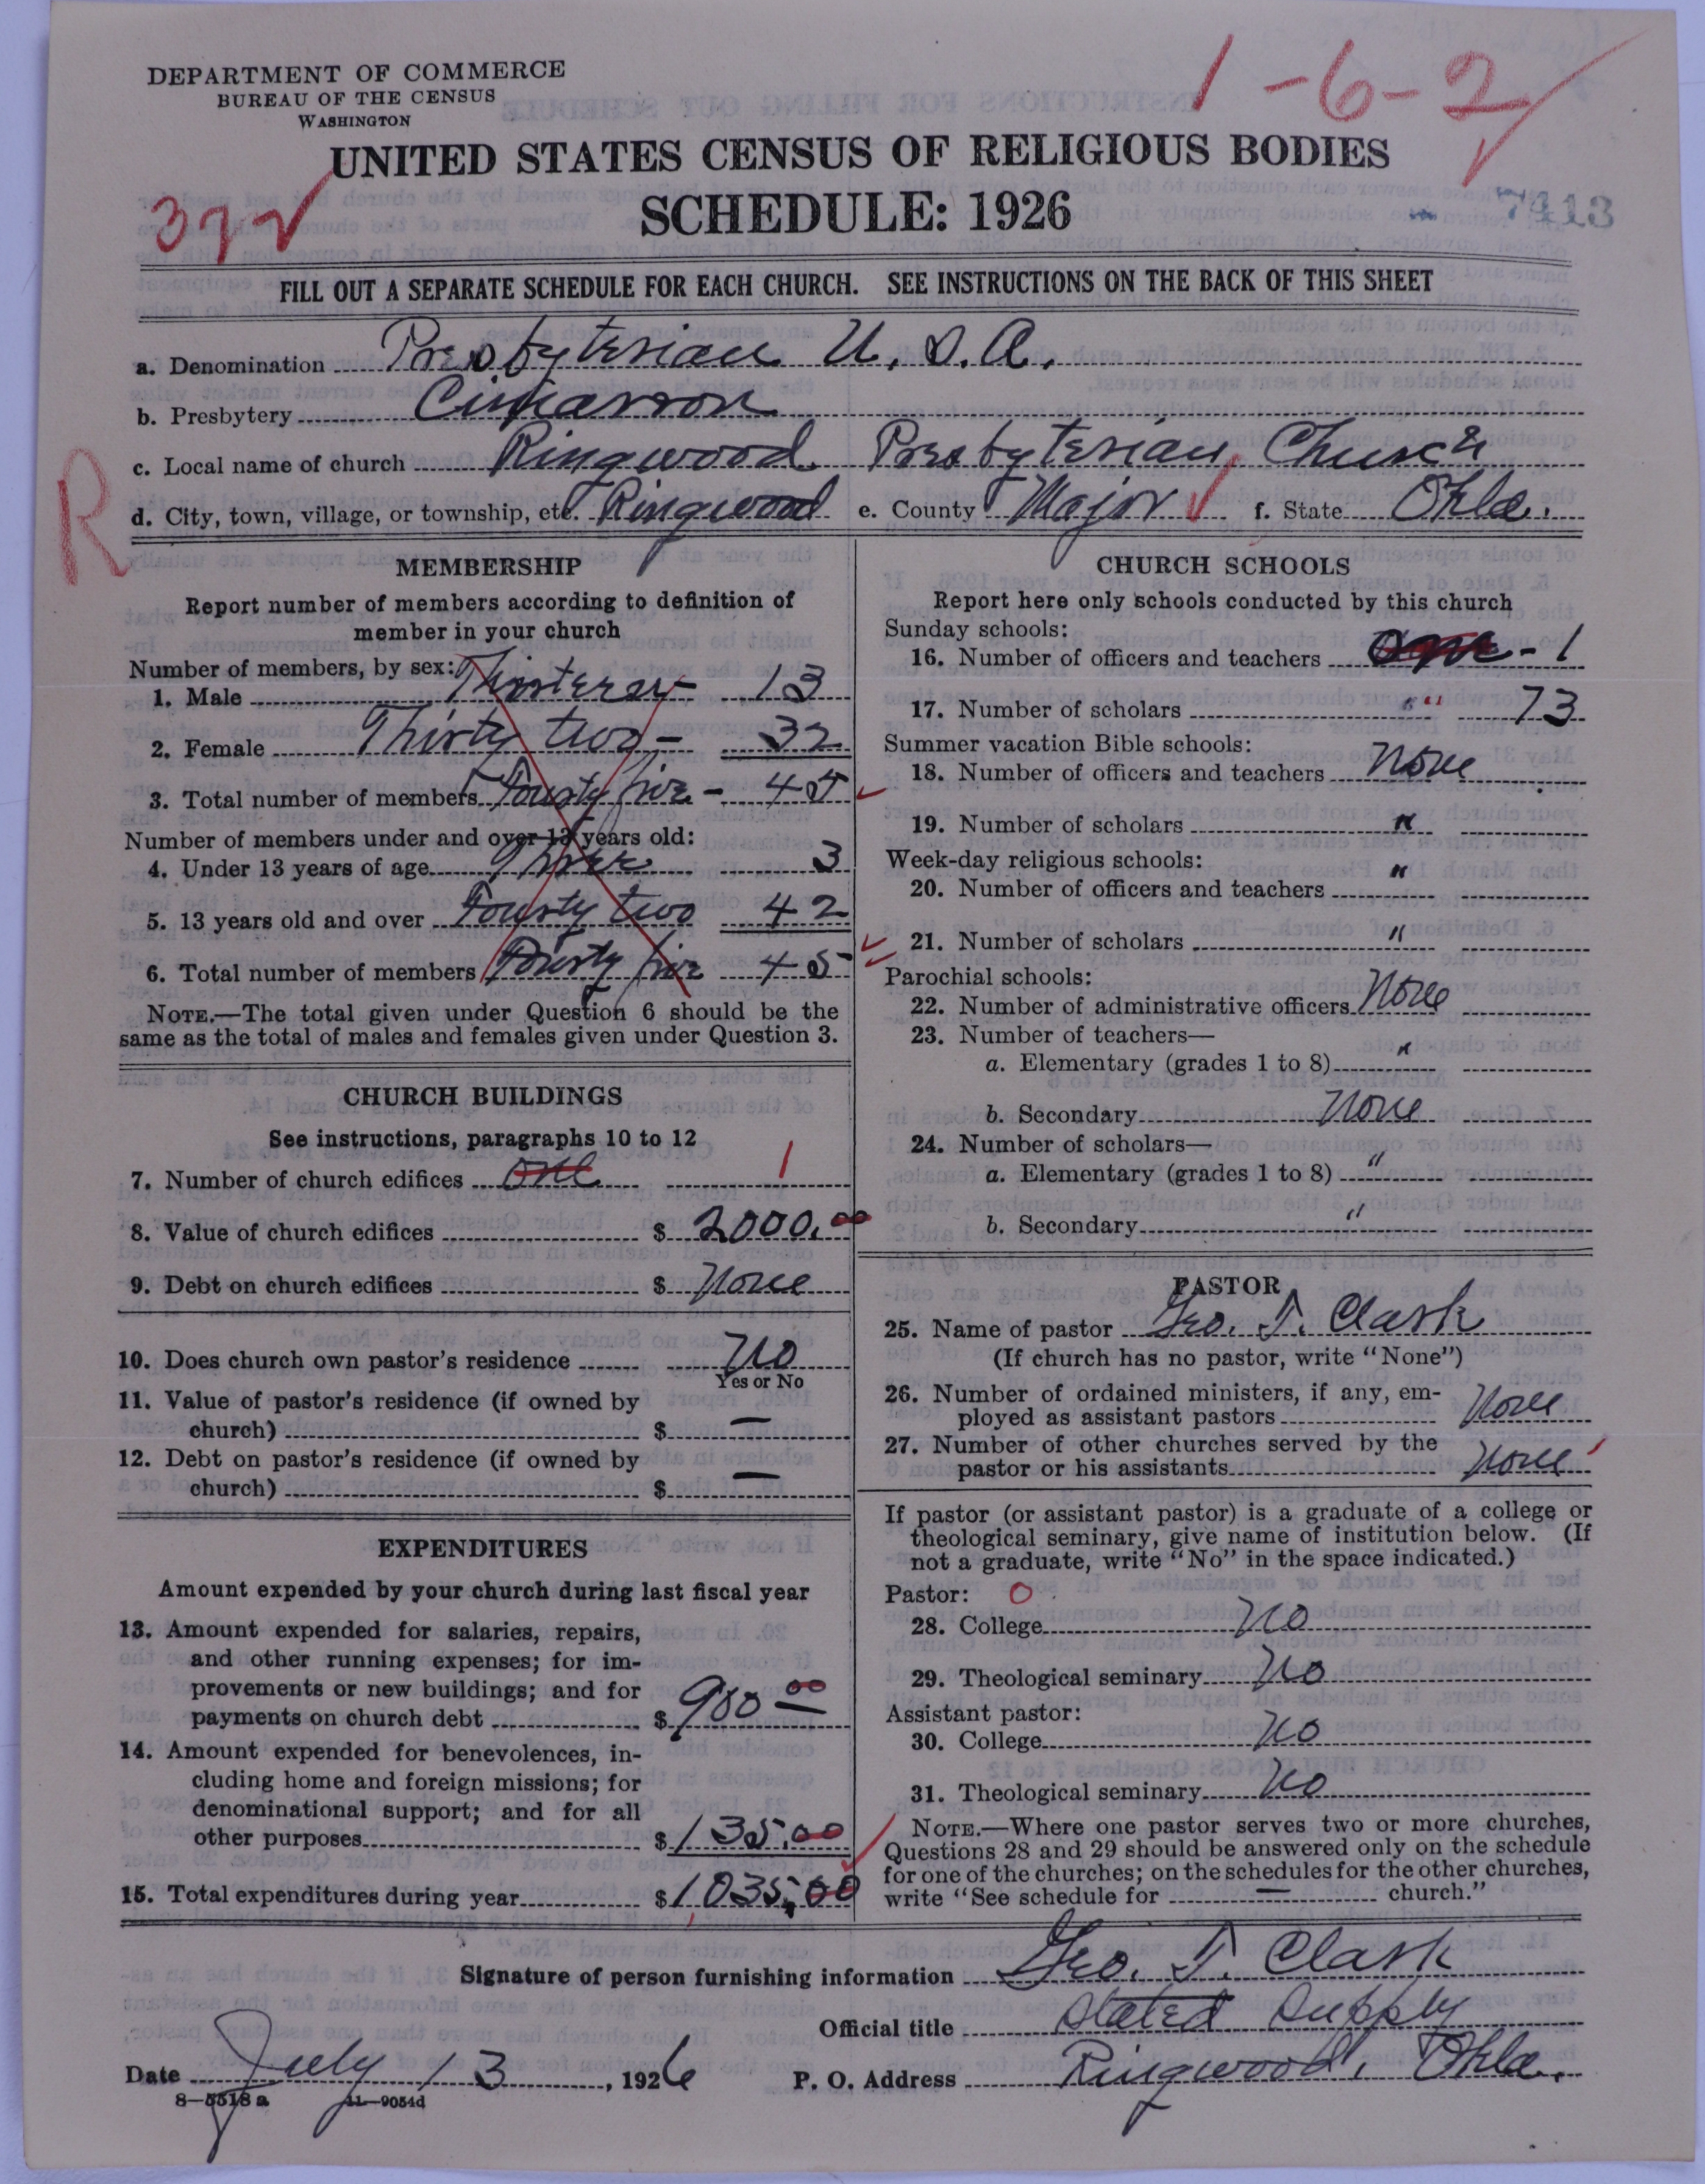 DEPARTMENT OF COMMERCE
BUREAU OF THE CENSUS
WASHINGTON
1-6-2
UNITED STATES CENSUS OF RELIGIOUS BODIES
SCHEDULE: 1926
37
7413
FILL OUT A SEPARATE SCHEDULE FOR EACH CHURCH. SEE INSTRUCTIONS ON THE BACK OF THIS SHEET
a. Denomination Presbyterian U.S.A.
b. Presbytery Cimarron
c. Local name of church Ringwood Presbyterian Church
R
d. City, town, village, or township, etc. Ringwood e. County Major f. State Okla.
MEMBERSHIP
Report number of members according to definition of
member in your church
Number of members, by sex:
1. Male Thirteen - 13
2. Female Thirty two - 32
3. Total number of members Fourty five - 45
Number of members under and over 13 years old:
4. Under 13 years of age Three 3
5. 13 years old and over Fourty two 42
6. Total number of members Fourty five 45
NOTE.—The total given under Question 6 should be the
same as the total of males and females given under Question 3.
CHURCH BUILDINGS
See instructions, paragraphs 10 to 12
7. Number of church edifices one 1
8. Value of church edifices $ 2000.00
9. Debt on church edifices $ None
10. Does church own pastor's residence No
Yes or No
11. Value of pastor's residence (if owned by
church) $ —
12. Debt on pastor's residence (if owned by
church) $ —
EXPENDITURES
Amount expended by your church during last fiscal year
13. Amount expended for salaries, repairs,
and other running expenses; for im-
provements or new buildings; and for
payments on church debt $ 900 00
14. Amount expended for benevolences, in-
cluding home and foreign missions; for
denominational support; and for all
other purposes $ 135.00
15. Total expenditures during year $ 1035.00
CHURCH SCHOOLS
Report here only schools conducted by this church
Sunday schools:
16. Number of officers and teachers one - 1
17. Number of scholars " 73
Summer vacation Bible schools:
18. Number of officers and teachers None
19. Number of scholars "
Week-day religious schools:
20. Number of officers and teachers "
21. Number of scholars "
Parochial schools:
22. Number of administrative officers None
23. Number of teachers—
a. Elementary (grades 1 to 8) "
b. Secondary None
24. Number of scholars—
a. Elementary (grades 1 to 8) "
b. Secondary "
PASTOR
25. Name of pastor Geo. T. Clark
(If church has no pastor, write "None")
26. Number of ordained ministers, if any, em-
ployed as assistant pastors None
27. Number of other churches served by the
pastor or his assistants None
If pastor (or assistant pastor) is a graduate of a college or
theological seminary, give name of institution below. (If
not a graduate, write "No" in the space indicated.)
Pastor: 0
28. College No
29. Theological seminary No
Assistant pastor:
30. College No
31. Theological seminary No
NOTE.—Where one pastor serves two or more churches,
Questions 28 and 29 should be answered only on the schedule
for one of the churches; on the schedules for the other churches,
write "See schedule for — church."
Signature of person furnishing information Geo. T. Clark
Official title Stated Supply
Date July 13, 1926 P. O. Address Ringwood, Okla.
8—5518 a 11—9054d